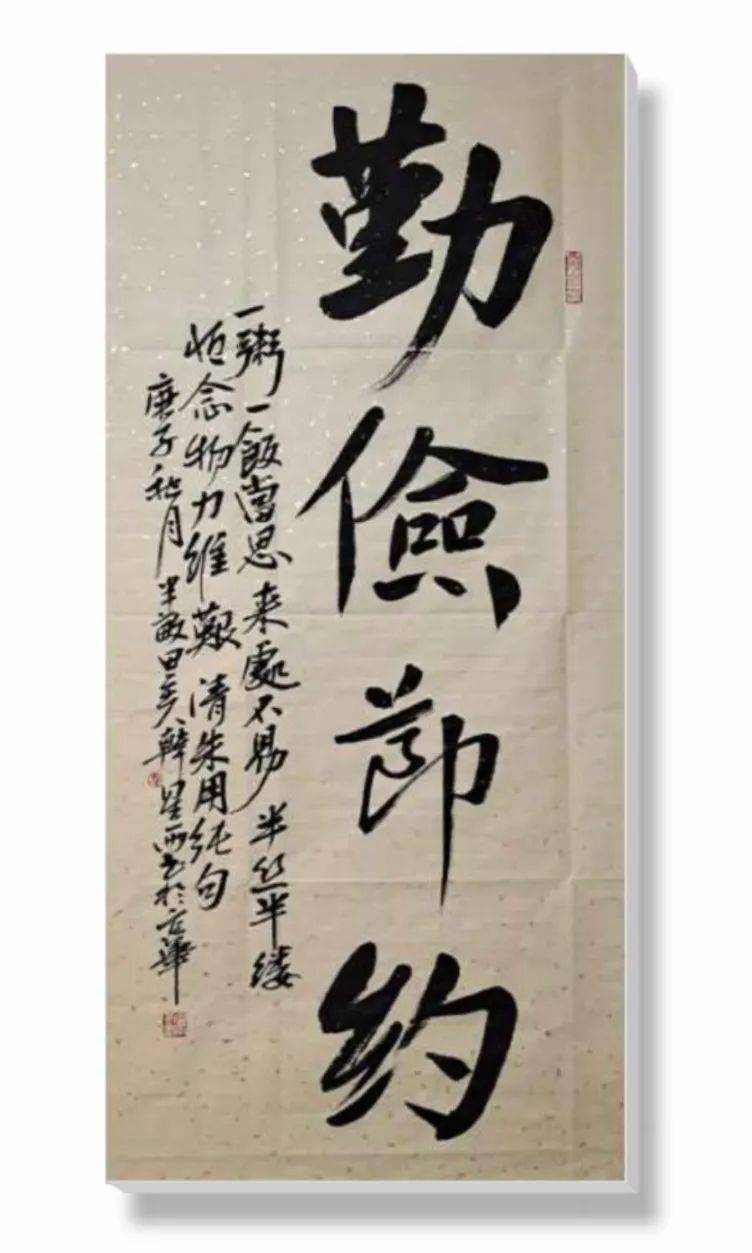 勤儉節约
一粥一飯當思来處不易半丝半缕
恒念物力維艱清朱用纯句
庚子秋月半畝田美韓星西书於京華